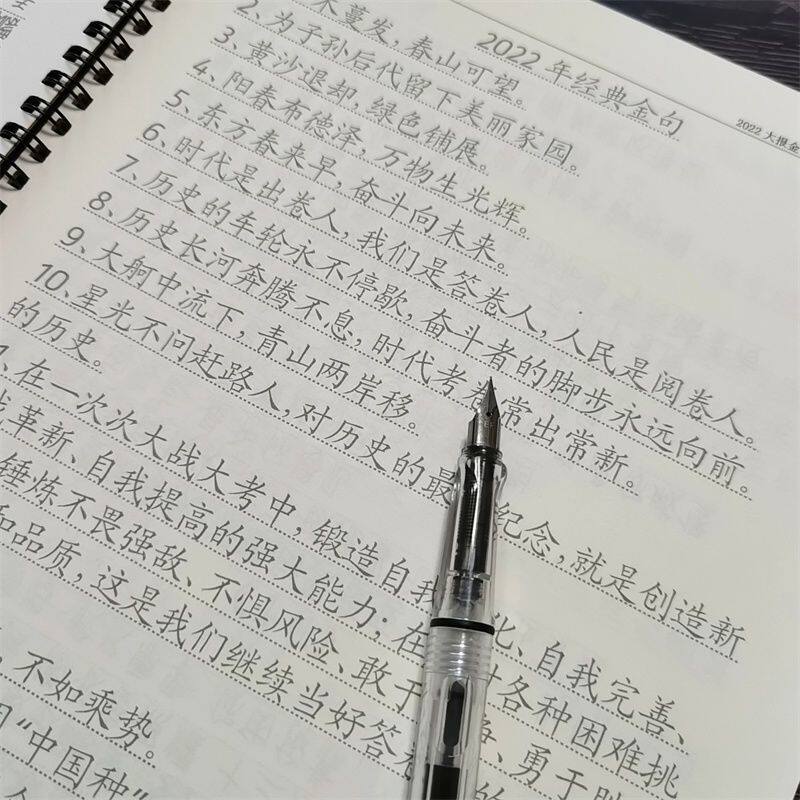 2022大报金
2022年经典金句
木蔓发,春山可望。
2、为子孙后代留下美丽家园。
3、黄沙退却,绿色铺展。
4、阳春布德泽,万物生光辉。
5、东方春来早,奋斗向未来。
6、时代是出卷人,我们是答卷人,人民是阅卷人。
7、历史的车轮永不停歇,奋斗者的脚步永远向前。
8、历史长河奔腾不息,时代考卷常出常新。
9、大舸中流下,青山两岸移。
10、星光不问赶路人,对历史的最 纪念,就是创造新
的历史。
、在一次次大战大考中,锻造自我 化、自我完善、
革新、自我提高的强大能力;在 对各种困难挑
锤炼不畏强敌、不惧风险、敢于 、勇于
品质,这是我们继续当好答 的
,不如乘势。
“中国种”